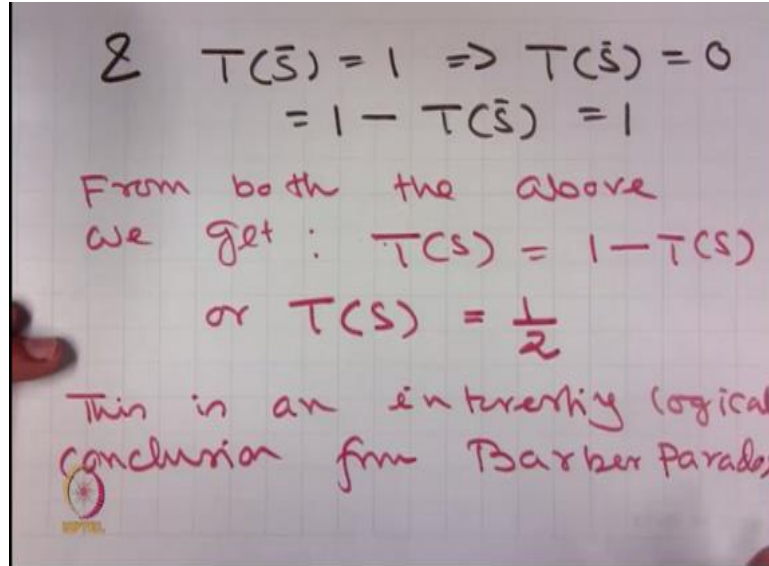 & T(S̄) = 1 => T(S̄) = 0
= 1 - T(S̄) = 1
From both the above
we get : T(S) = 1 - T(S)
or T(S) = 1/2
This is an interesting logical
conclusion from Barber Parado
NPTEL